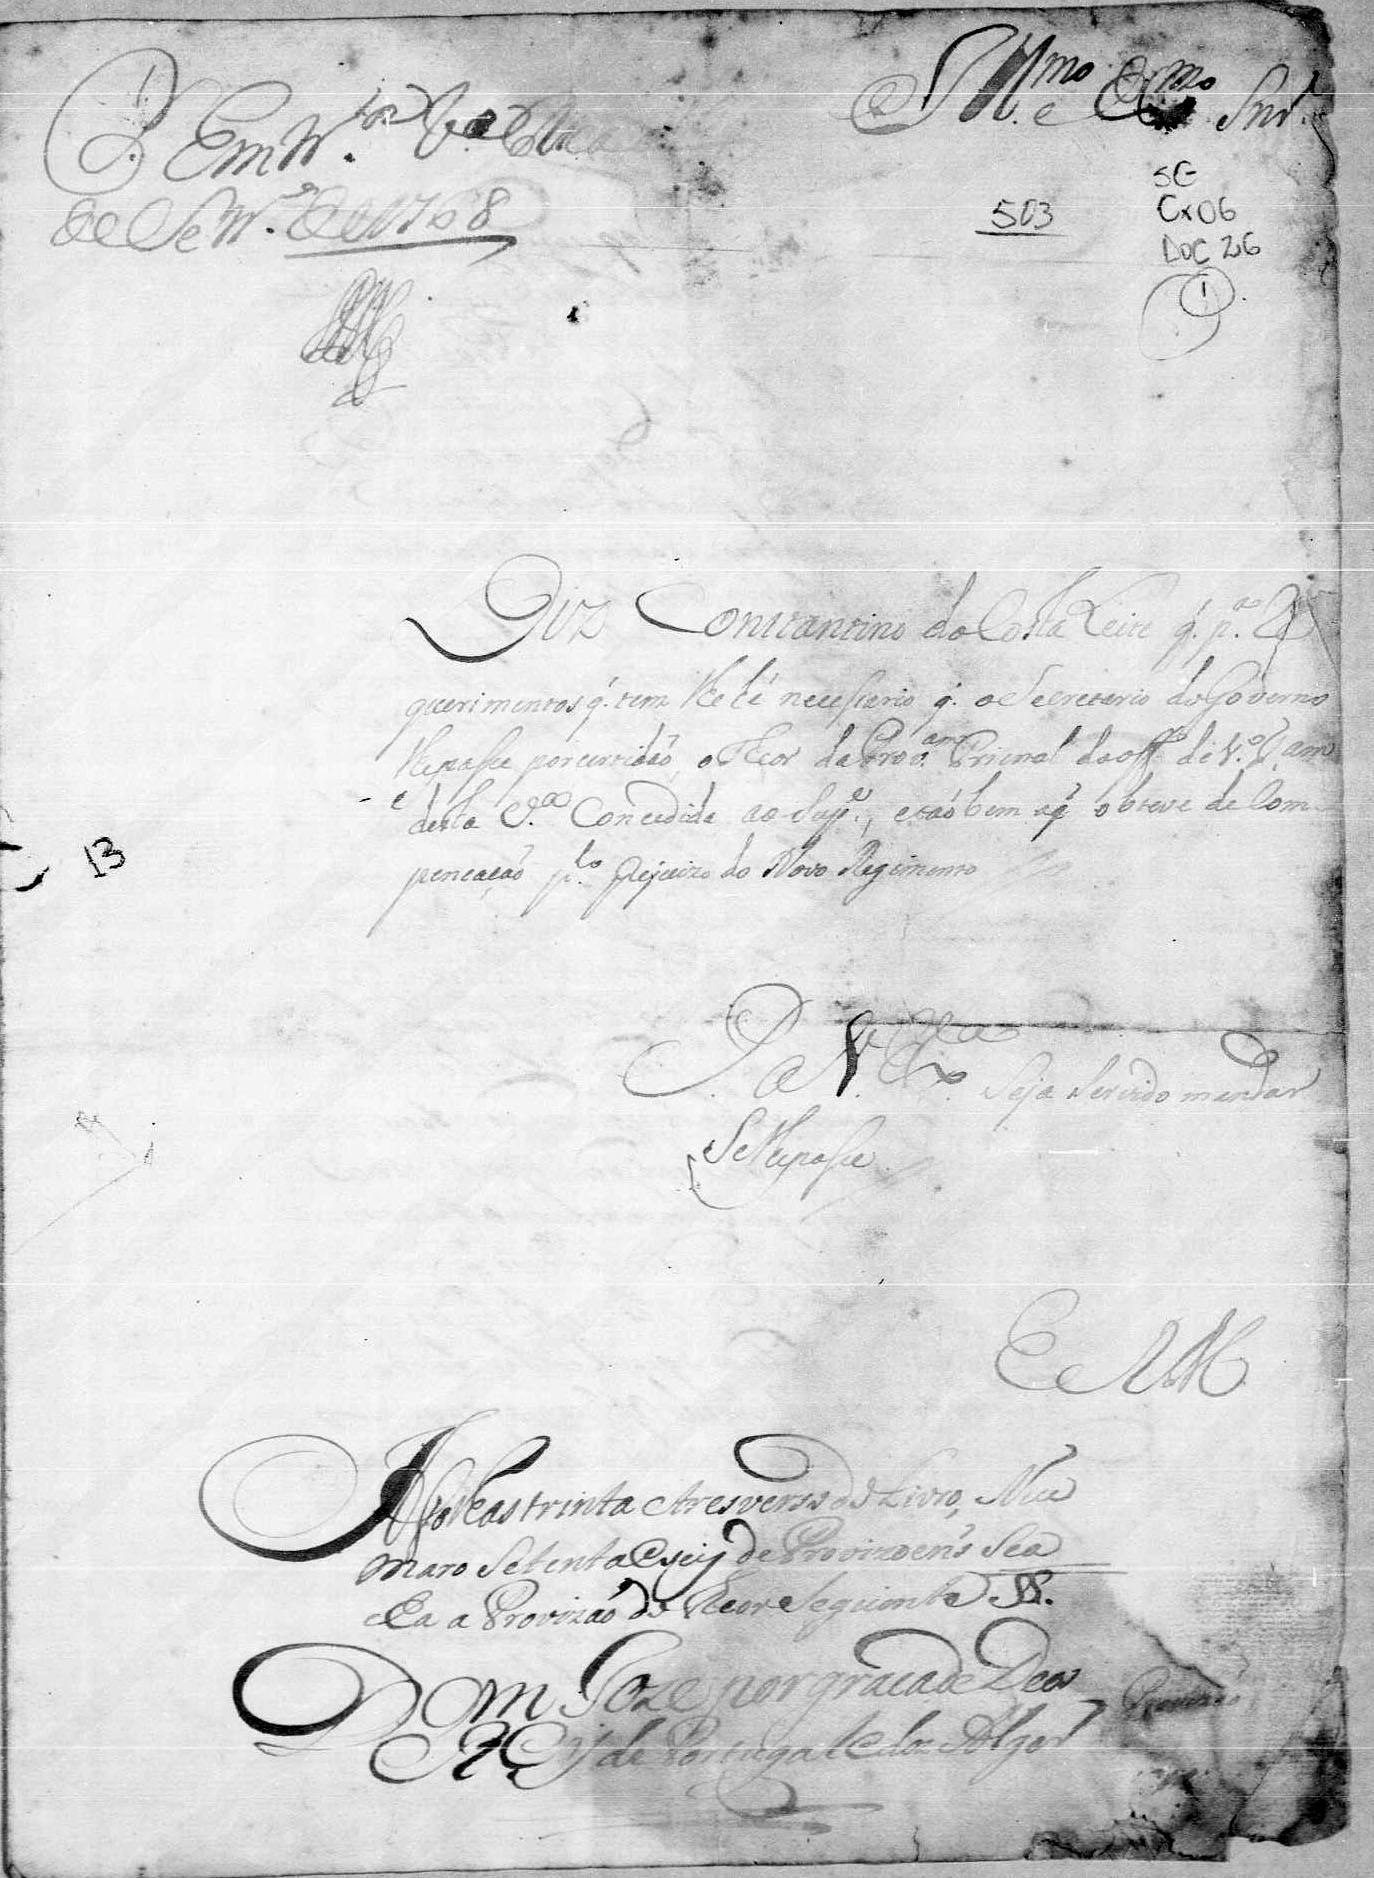 Illmo. e Exmo. Snr.
P. Em tr.os V.a Rica
de Setr.o de 1768
503
SG
Cx06
Doc 26
1
Diz Constantino da Costa Leite q. p.a Re
querimentos q. tem lhe hé necessario q. o Secretario do Governo
lhe passe por certidaõ, o theor da Prov.am Princial do off.o de
desta V.a Concedida ao Sup.e, e taõ bem aq o breve de Com
pencaçaõ p.lo prejuizo do Novo Regimento
13
P. a V. Ex.a Seja Servido mandar
Se lhe passe
E R M
A folhas trinta e tres verso do Livro, Nu
maro Setenta e seis de Provizoens Sea
cha a Provizaõ do theor Seguinte
Dom Joze por graça de Deos
Rey de Portugal e dos Algar
Provizaõ